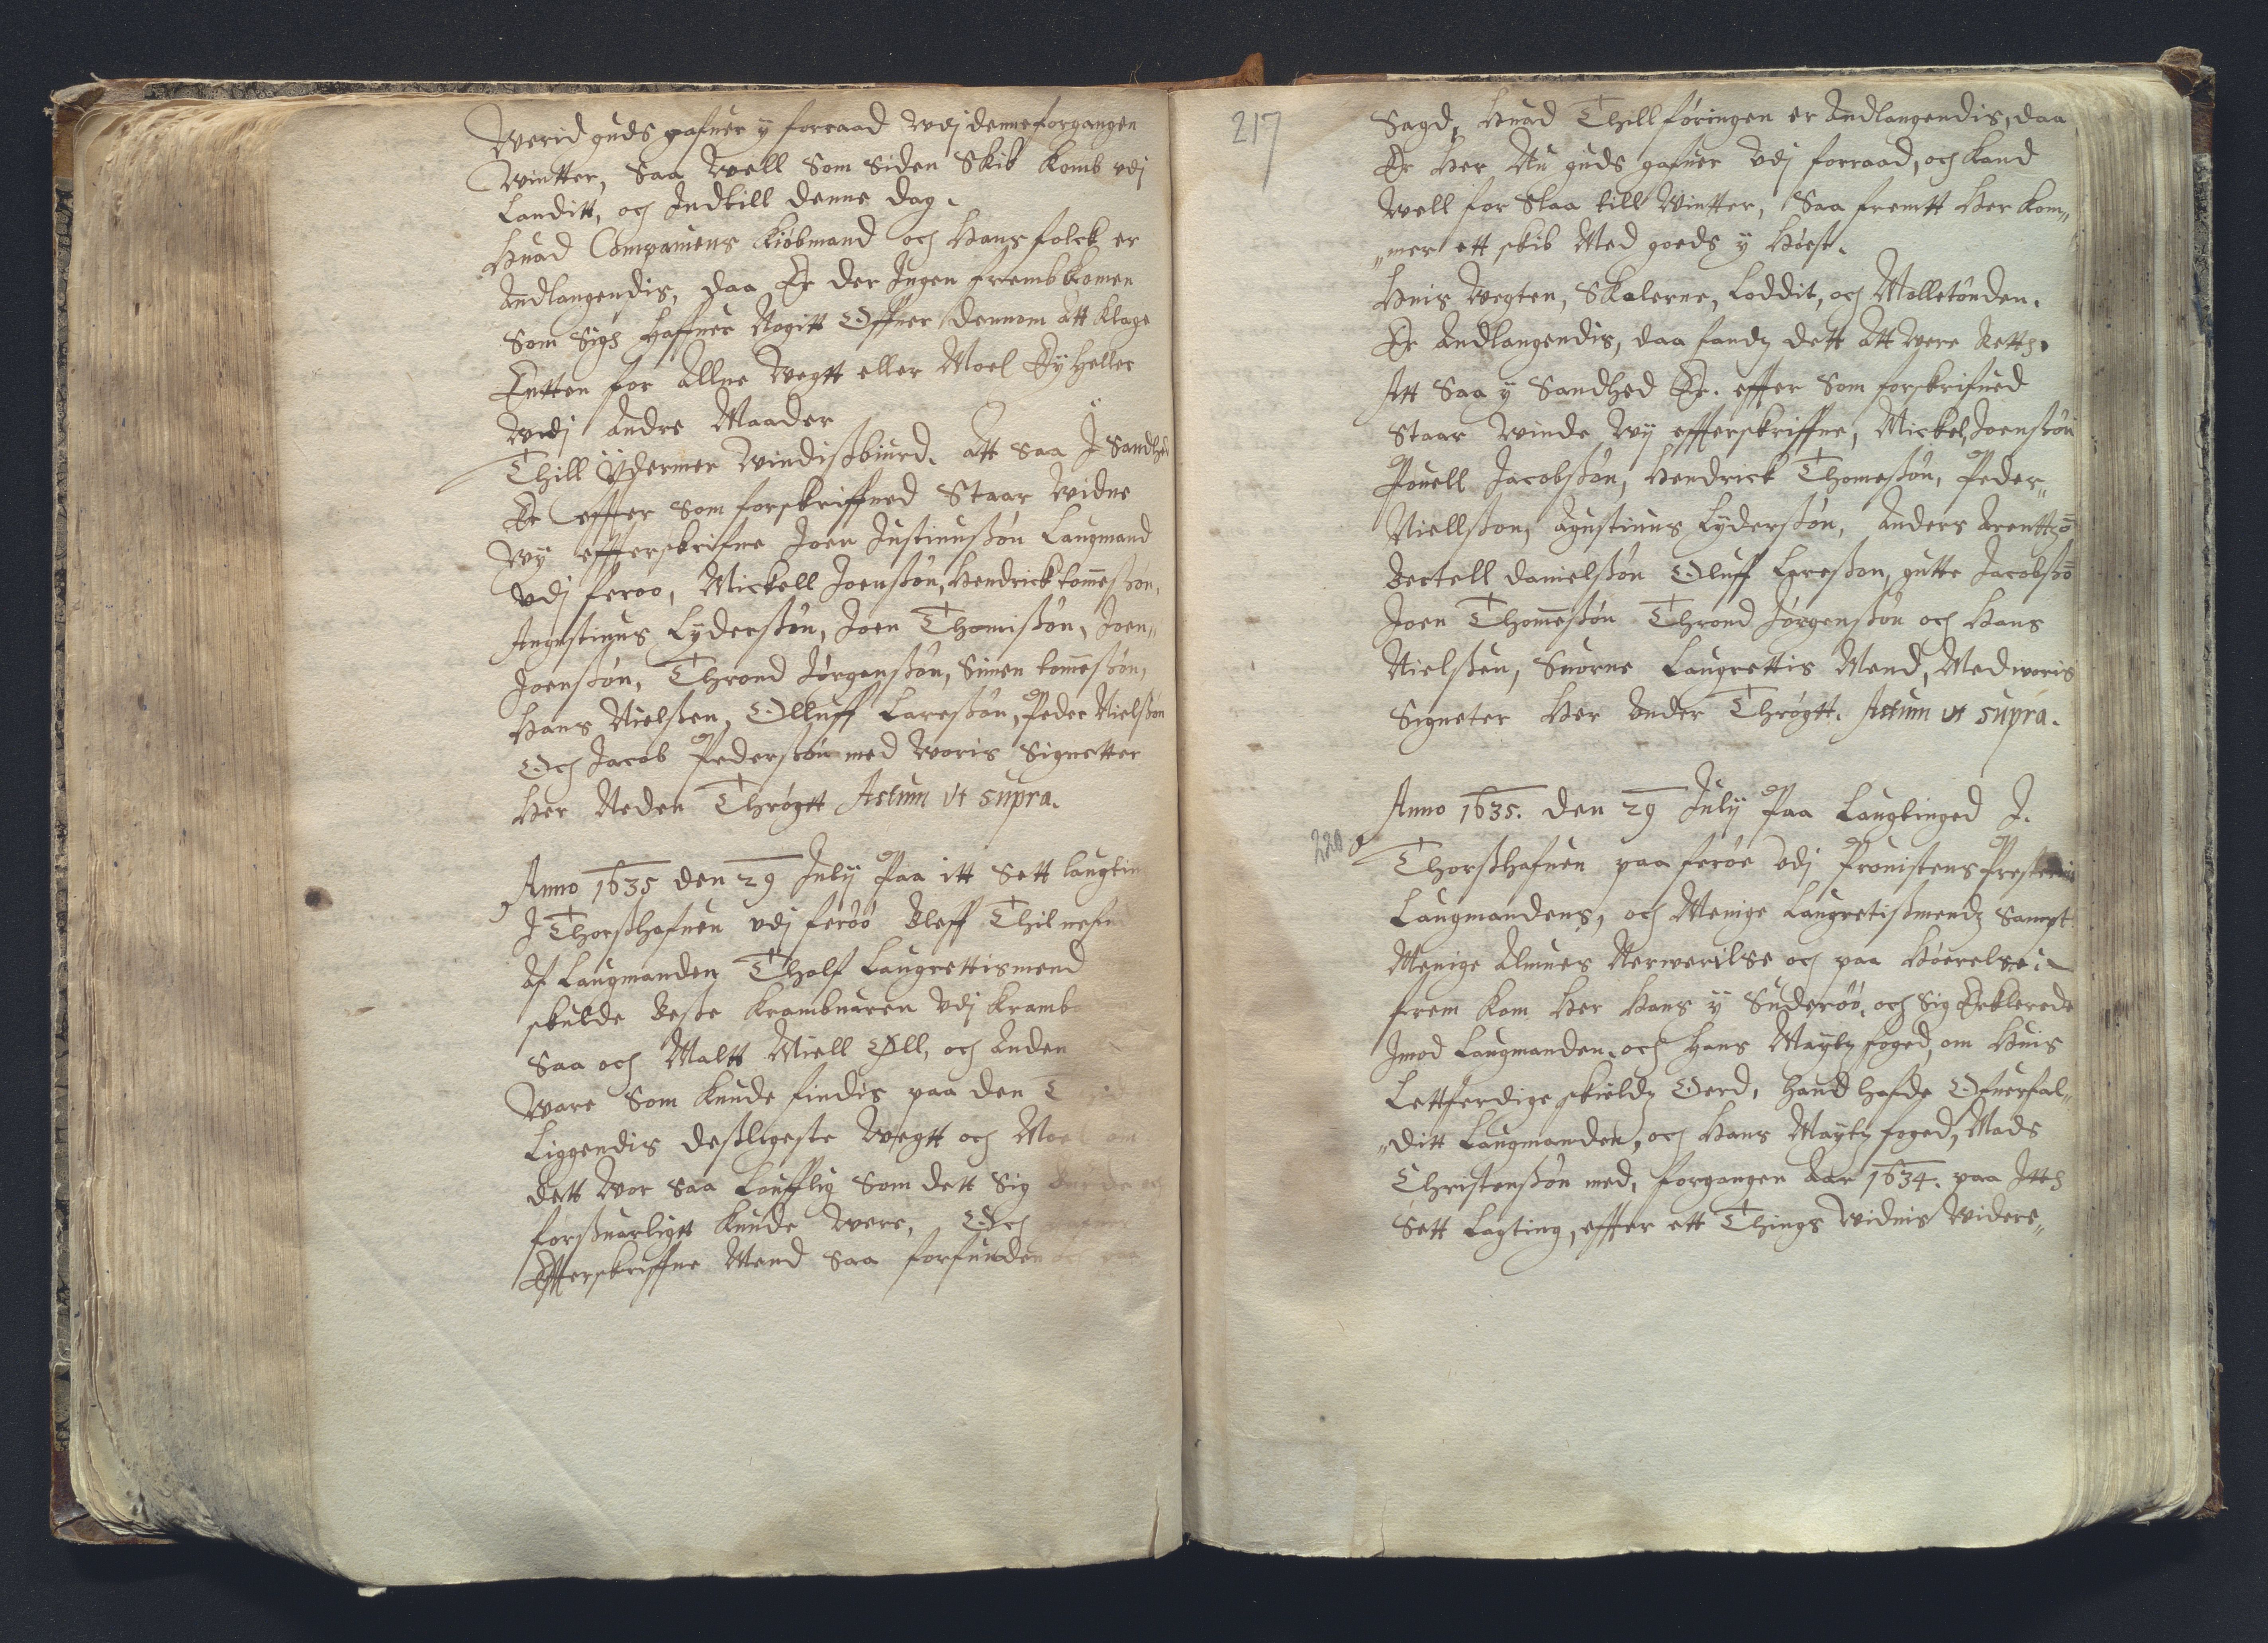 Werid guds gafuer y forraad Vdj denne forgangen
Wintter, Saa Well Som Siden Skib Komb vdj
Landitt, och Indtill denne dag.
Huad Companiens Kiöbmand och Hans folck er
Andlangendis, daa Er der Ingen frembkomen
Som Sigh haffuer Nogitt Offuer dennom att Klage
Entten for Allne Wegtt eller Moel Ey Heller
Wdj Andre Maader
Thill Ÿdermer Windisbiurd. att Saa I Sandhed
Er effter Som forskriffued Staar Widne
Wÿ effterskrifne Joen Justinusßön Laugmand
Vdj feroo, Mickell Joensßön, Hendrick tomeßön,
Augustinus Lÿdersßön, Joen Thomisßön, Joen„
Joensßön, Thrond Jörgensßön, Simen tomeßön,
Hans Nielßen, Olluff Laresßön, Peder Nielßön
Och Jacob Pedersßön med Woris Signetter
Her Neden Thrögtt Actum Vt supra.
Anno 1635 den 29 Julÿ Paa itt Sett laugtin
I Thorßhafnen vdj feröö Bleff Thil nefn
Af Laugmanden Tholf Laugrettismend
skulde Besße Krambuaren Vdj Kramb
Saa och Maltt Miell Øll, och Anden
Ware Som Kunde findis paa den
Liggendis desßligeste Wegtt och Moel om
dett Wor Saa Loufflig Som dett Sig Burde och
forßuarligtt Kunde Were, Och
Effterskriffne Mend Saa forfunden och paa
217
Sagd, Huad Thillföringen er Andlangendis, daa
Er Her Nu guds gafuer Vdj forraad, och Kand
Well for Slaa till Wintter, Saa fremtt Her Kom„
„mer ett skib Med goeds y Höest.
Huis Wegten, Skalerne, Loddit, och Molletönden.
Er Andlangendis, daa fandz dett Att Were Retth.
Att Saa y Sandhed Er. effter Som forskrifued
Staar Winde Wÿ effterskriffne, Mickel Joensßön
Pouell Jacobsßön, Hendrick Thomesßön, Peder„
Niellsßon, Agustinus Lÿdersßön, Anders Arenttsö
Bertell danielsßön Oluff Laresßon, gutte Jacobsßö
Joen Thomesßön Thrond Jörgensßön och Hans
Nielßen, Suorne Laugrettis Mend, Med woris
Signeter Her Under Thrögtt. Actum ut supra.
Anno 1635. den 29 Julÿ Paa Laugtinged I.
220
Thorßhafnen paa feröe Vdj Prouistens Presterne
Laugmandens, och Menige Laugretisßmendz Sampt
Menige Almues Nerwerilse och paa Höerelse.
frem Kom Her Hans ÿ Suderöö, och Sig Erklerede
Imod Laugmanden. och Hans Maÿtz foged, om Huis
Lettferdige skieldz Oerd, Hand hafde Ofuerfal„
„ditt Laugmanden, och Hans Maÿtz foged, Mads
Christensßön med, forgangen Aar 1634. paa Itth
Sett Lagting, effter ett Things Widnis Widere„